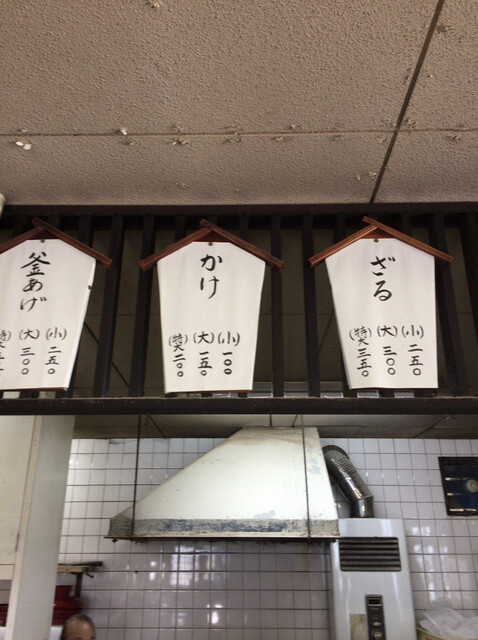 ざる
(小)二五〇
(大)三〇〇
(特大)三五〇
かけ
(小)一〇〇
(大)一五〇
(特大)二〇〇
釜あげ
(小)二五〇
(大)三〇〇